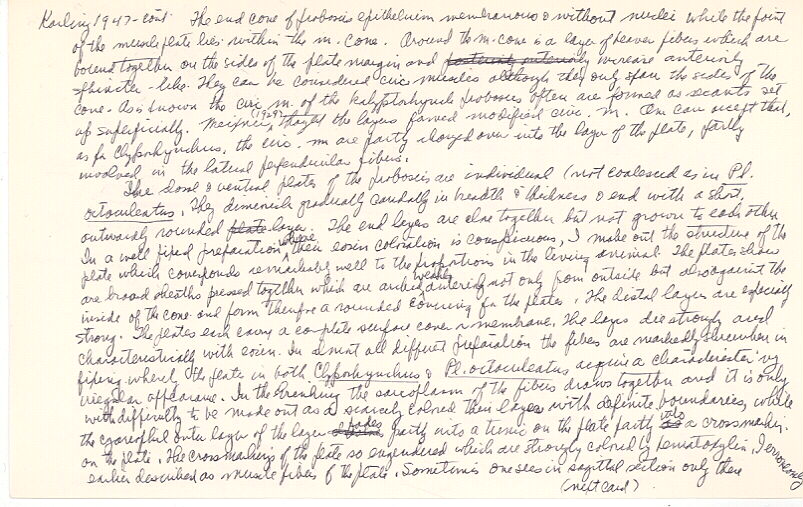 Karling 1947 - cont. The end cone of proboscis epithelium membranous & without nuclei while the point
of the muscle plate lies within the m. cone. Around the m. cone is a layer of fibers which are
bound together on the sides of the plate margin and increase anteriorly
sphincter-like. They can be considered circ muscles although they only span the sides of the
cone. As is known the circ m. of the kalyptorhynch proboscis often are formed as secants set
up superficially. Meixner (1929) thought the layers formed modified circ. m. One can accept that,
as for Clyporhynchus, the circ. m. are partly shoved over into the layer of the plate, partly
involved in the lateral perpendicular fibers.
The dorsal & ventral plates of the proboscis are individual (not coalesced as in Pl.
octoculeatus. They diminish gradually caudally in breadth & thickness & end with a short,
outwardly rounded plate layer. The end layers are close together but not grown to each other
In a well fixed preparation where their eosin coloration is conspicuous, I make out the structure of the
plate which corresponds remarkably well to the proportions in the living animal. The plates show
are broad sheaths pressed together which are arched weakly anteriorly not only from outside but also against the
inside of the cone and form therefore a rounded covering for the plates. The distal layers are especially
strong. The plates each carry a complete surface cover or membrane. The layers dye strongly and
characteristically with eosin. In almost all different preparation the fibers are markedly shrunken in
fixing whereby the plates in both Clyporhynchus & Pl. octoculeatus acquire a characteristic
irregular appearance. In the shrinking the sarcoplasm of the fibers draws together and it is only
with difficulty to be made out as a scarcely colored thin layer with definite boundaries, while
the cyanophil outer layer of the layer partly into a tunic on the plate partly into a cross marking
on the plate. The cross markings of the plate so engendered which are strongly colored by hematoxylin, I erroneously
earlier described as muscle fibers of the plate. Sometimes one sees in sagittal section only these
(next card)